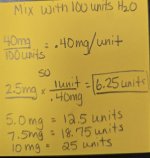 Mix with 100 units H₂O
40mg/100units = .40mg/unit
SO
2.5mg x 1unit/.40mg = 6.25 units
5.0mg = 12.5 units
7.5mg = 18.75 units
10mg = 25 units